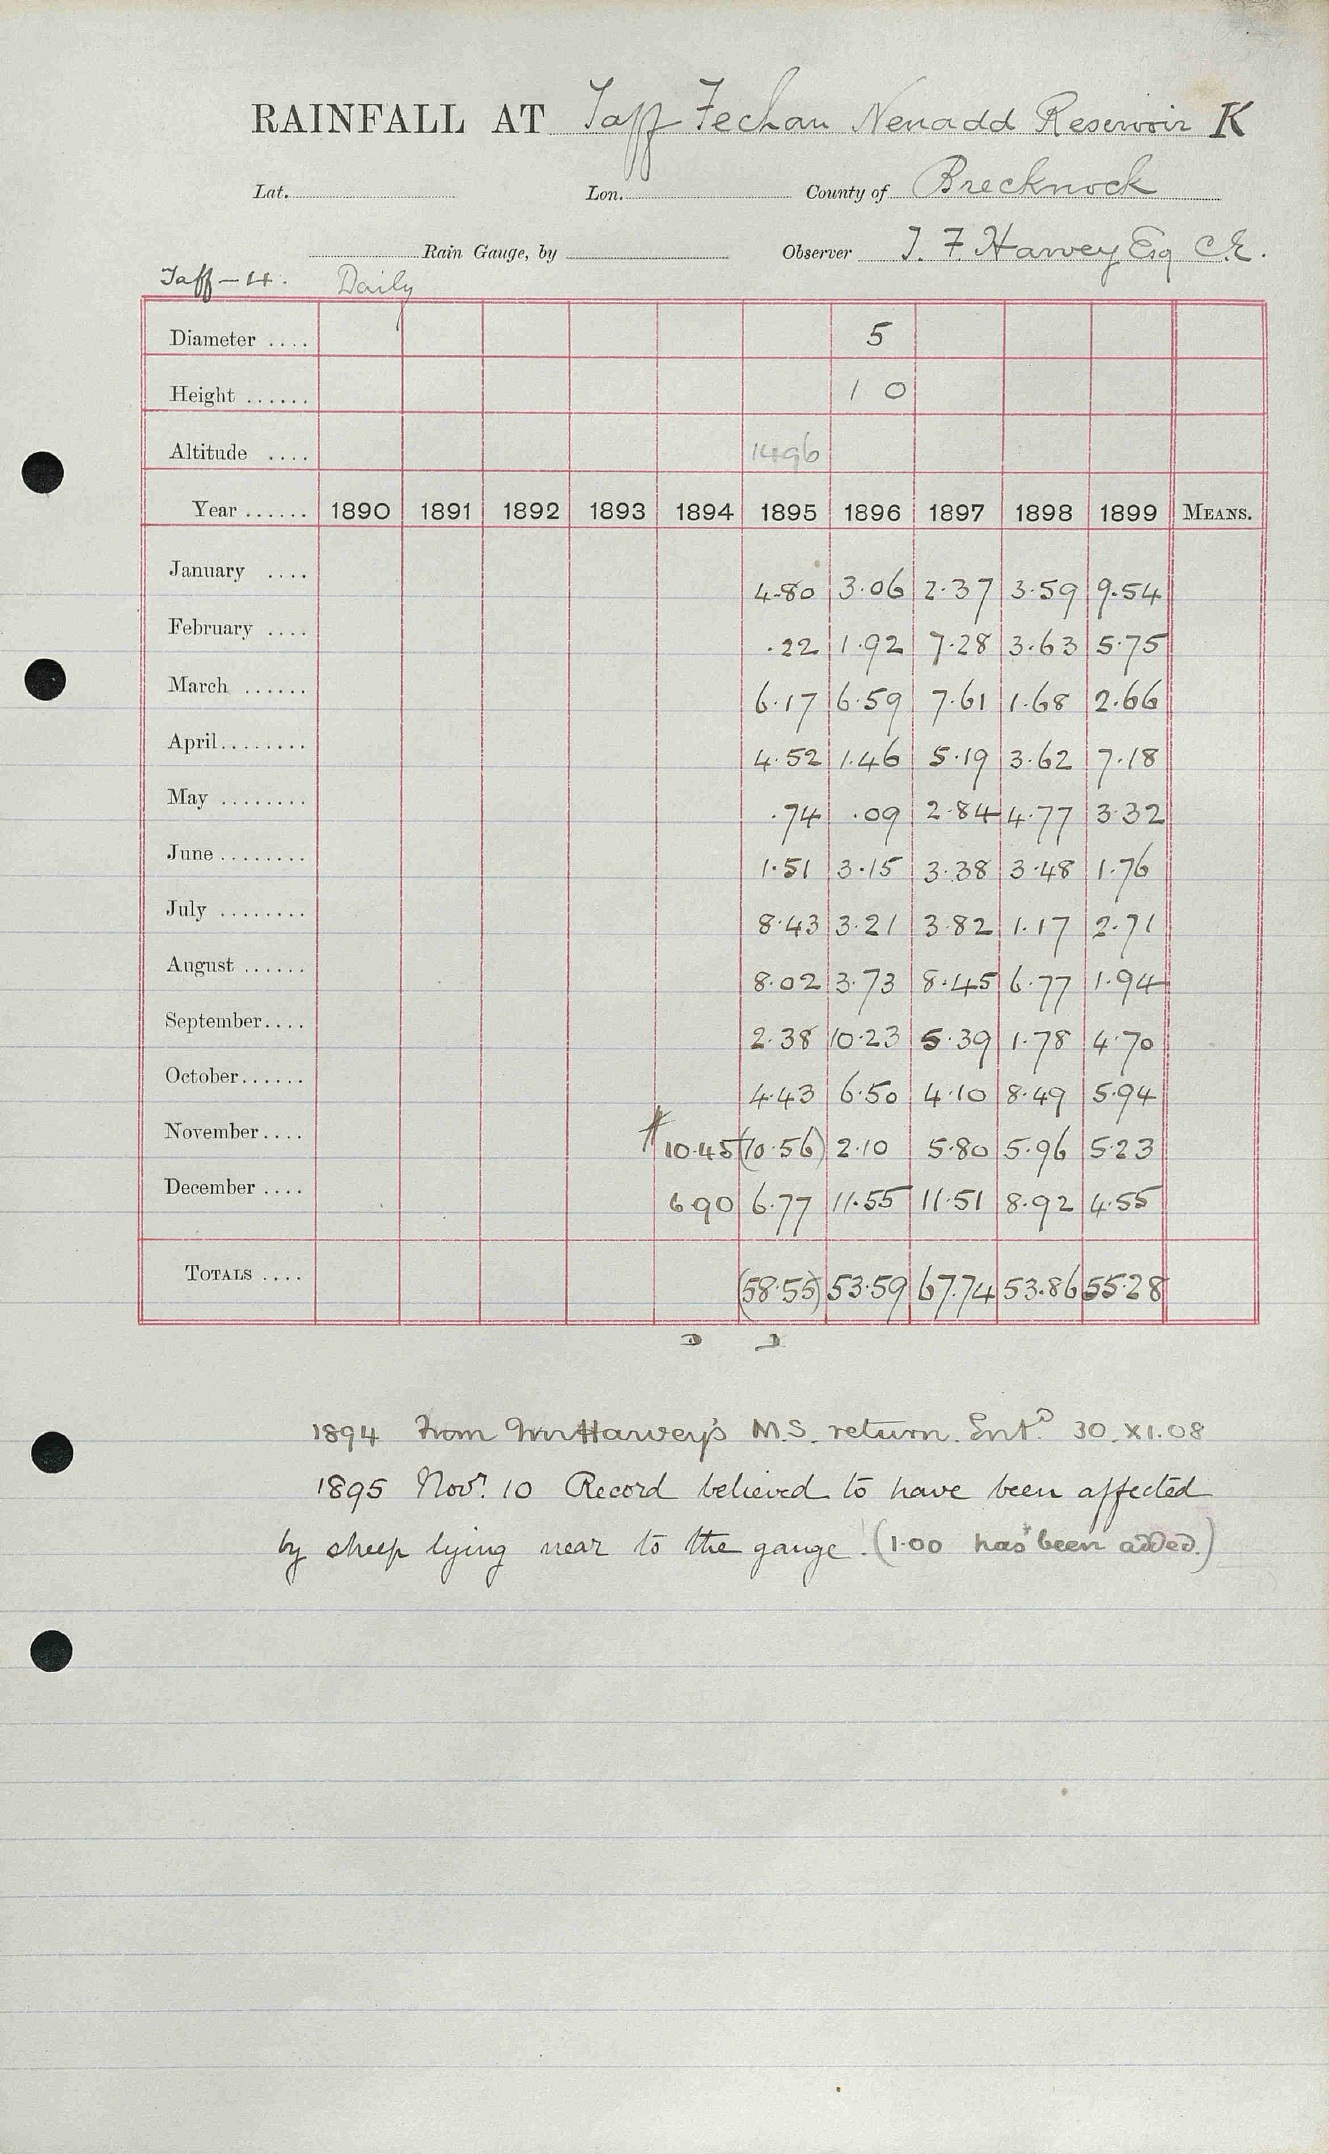 RAINFALL AT Taff Fechan Nenadd Reservoir K
Lat. Lon. County of Brecknock
Rain Gauge, by Observer T. F. Harvey Esq C.E.
Taff — 4. Daily
Diameter .... 5
Height ...... 1 0
Altitude .... 1496
Year ...... 1890 1891 1892 1893 1894 1895 1896 1897 1898 1899 MEANS.
January .... 4.80 3.06 2.37 3.59 9.54
February .... .22 1.92 7.28 3.63 5.75
March ...... 6.17 6.59 7.61 1.68 2.66
April........ 4.52 1.46 5.19 3.62 7.18
May ........ .74 .09 2.84 4.77 3.32
June ........ 1.51 3.15 3.38 3.48 1.76
July ........ 8.43 3.21 3.82 1.17 2.71
August ...... 8.02 3.73 8.45 6.77 1.94
September.... 2.38 10.23 5.39 1.78 4.70
October...... 4.43 6.50 4.10 8.49 5.94
November.... 10.45 (10.56) 2.10 5.80 5.96 5.23
December .... 6 90 6.77 11.55 11.51 8.92 4.55
TOTALS .... (58.55) 53.59 67.74 53.86 55.28
D D
1894 From Mr Harvey's M.S. return. Entd 30.XI.08
1895 Novr. 10 Record believed to have been affected
by sheep lying near to the gauge. (1.00 has been added.)